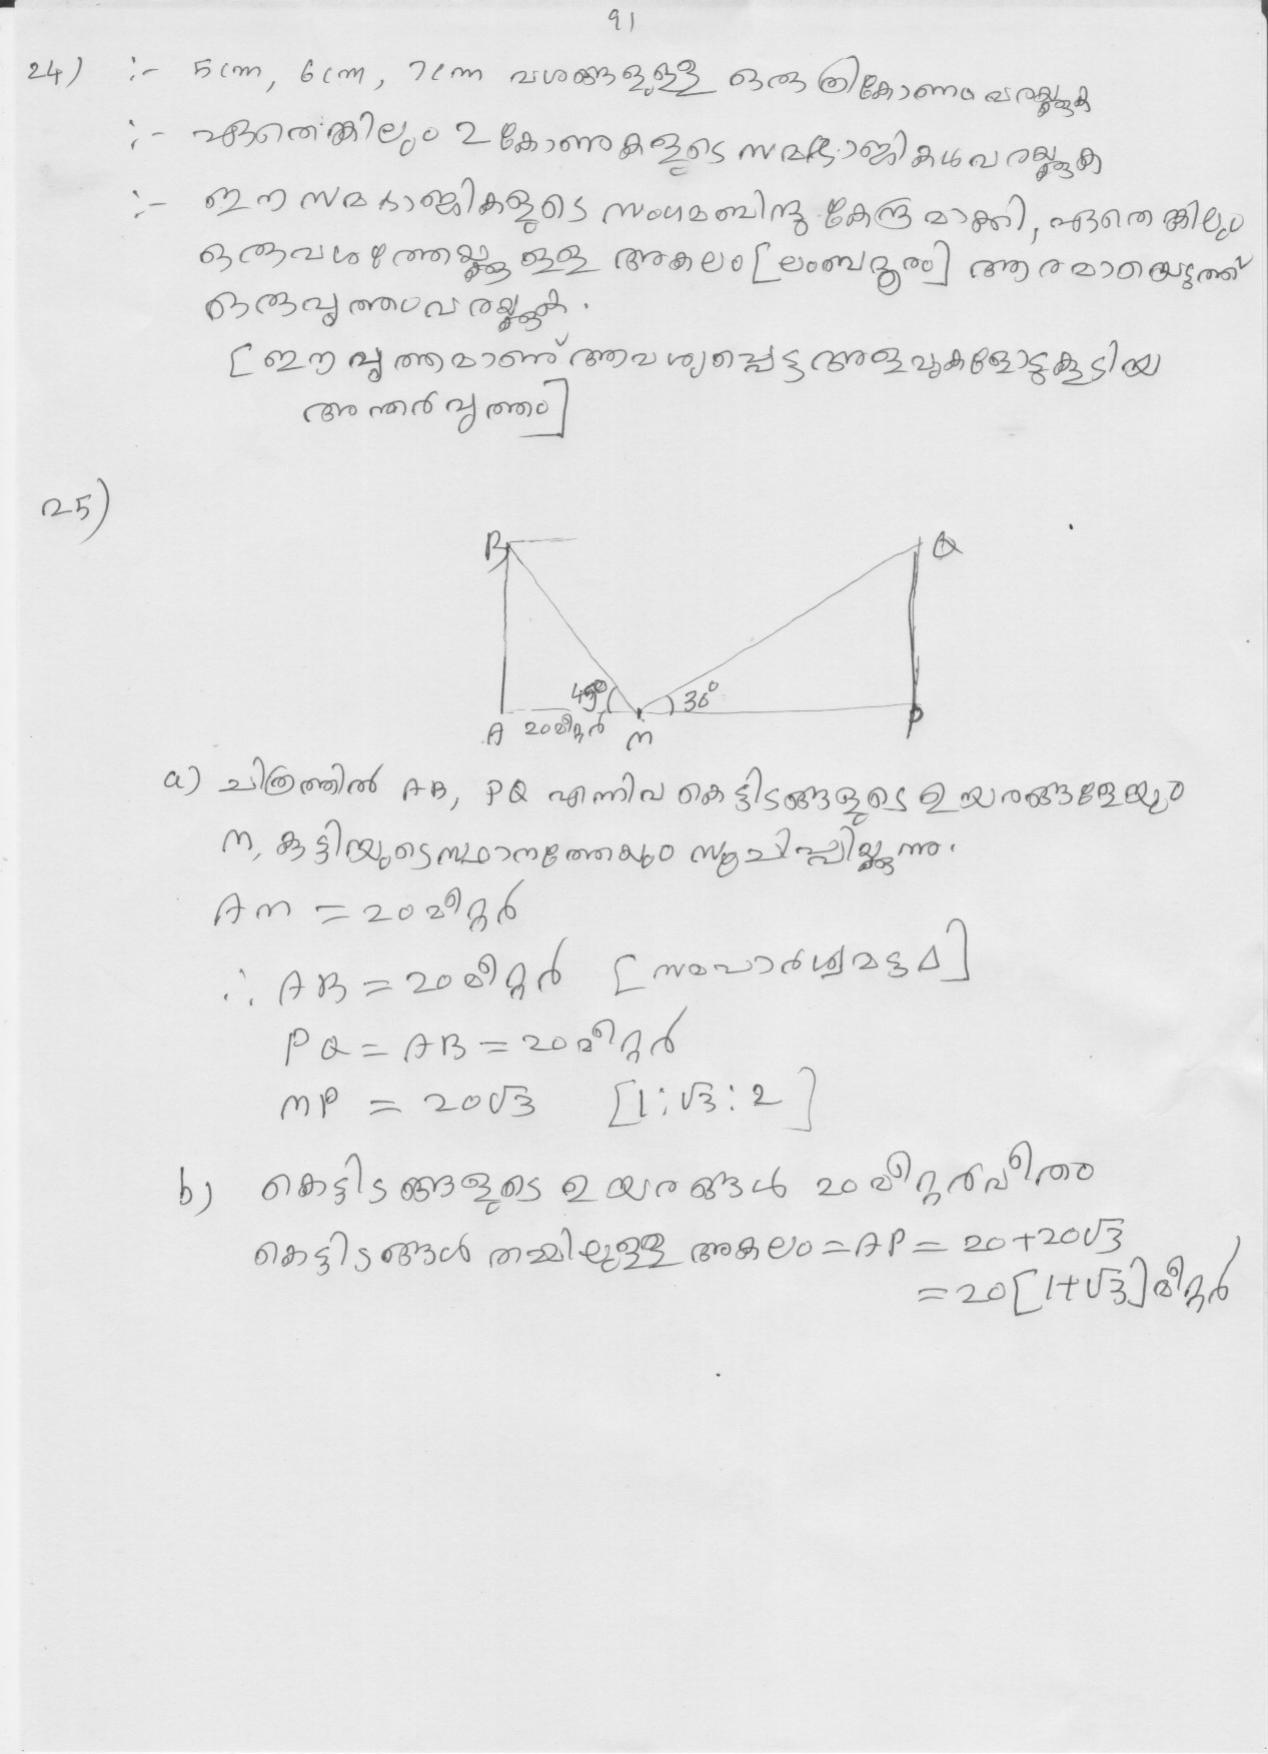 91
24) :- 5cm, 6cm, 7cm വശങ്ങളുള്ള ഒരു ത്രികോണം വരയ്ക്കുക
:- ഏതെങ്കിലും 2 കോണുകളുടെ സമഭാജികൾ വരയ്ക്കുക
:- ഈ സമഭാജികളുടെ സംഗമബിന്ദു കേന്ദ്രമാക്കി, ഏതെങ്കിലും
ഒരു വശത്തേയ്ക്കുള്ള അകലം [ലംബദൂരം] ആരമായെടുത്ത്
ഒരു വൃത്തം വരയ്ക്കുക.
[ഈ വൃത്തമാണ് ആവശ്യപ്പെട്ട അളവുകളോടുകൂടിയ
അന്തർവൃത്തം]
25)
B Q
45° 30°
A 20മീറ്റർ M P
a) ചിത്രത്തിൽ AB, PQ എന്നിവ കെട്ടിടങ്ങളുടെ ഉയരങ്ങളേയും
M, കുട്ടിയുടെ സ്ഥാനത്തേയും സൂചിപ്പിയ്ക്കുന്നു.
AM = 20 മീറ്റർ
∴ AB = 20 മീറ്റർ [സമപാർശ്വമട്ട Δ]
PQ = AB = 20 മീറ്റർ
MP = 20√3 [1:√3:2]
b) കെട്ടിടങ്ങളുടെ ഉയരങ്ങൾ 20 മീറ്റർ വീതം
കെട്ടിടങ്ങൾ തമ്മിലുള്ള അകലം = AP = 20+20√3
= 20[1+√3] മീറ്റർ